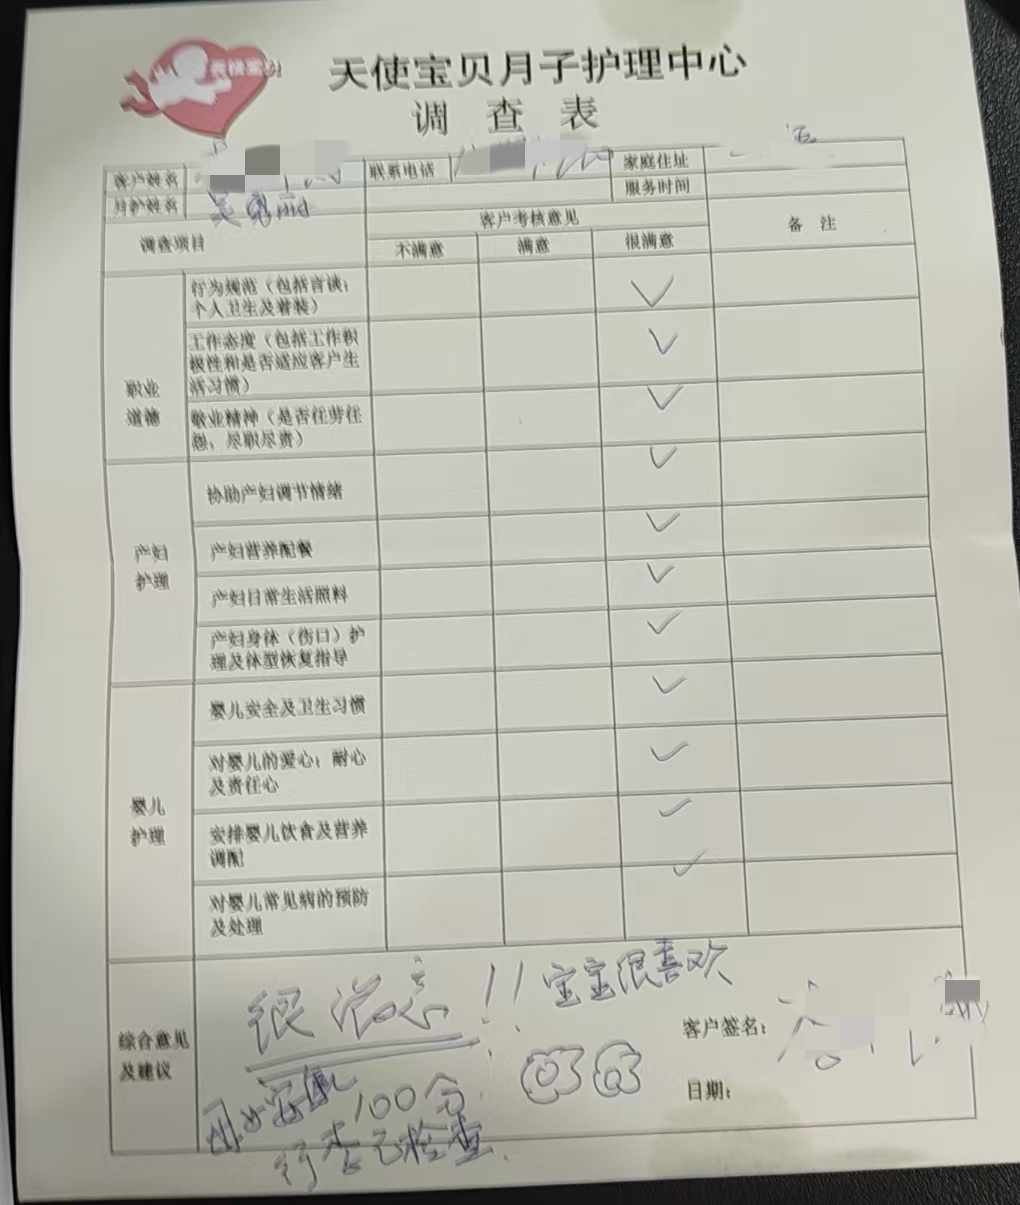 天使宝贝月子护理中心
调 查 表
客户姓名
联系电话
家庭住址
月护姓名
服务时间
调查项目
客户考核意见
备 注
不满意
满意
很满意
职业
道德
行为规范（包括言谈；
个人卫生及着装）
工作态度（包括工作积
极性和是否适应客户生
活习惯）
敬业精神（是否任劳任
怨，尽职尽责）
产妇
护理
协助产妇调节情绪
产妇营养配餐
产妇日常生活照料
产妇身体（伤口）护
理及体型恢复指导
婴儿
护理
婴儿安全及卫生习惯
对婴儿的爱心；耐心
及责任心
安排婴儿饮食及营养
调配
对婴儿常见病的预防
及处理
综合意见
及建议
很满意!! 宝宝很喜欢
100分
行李已检查.
客户签名：
日期：